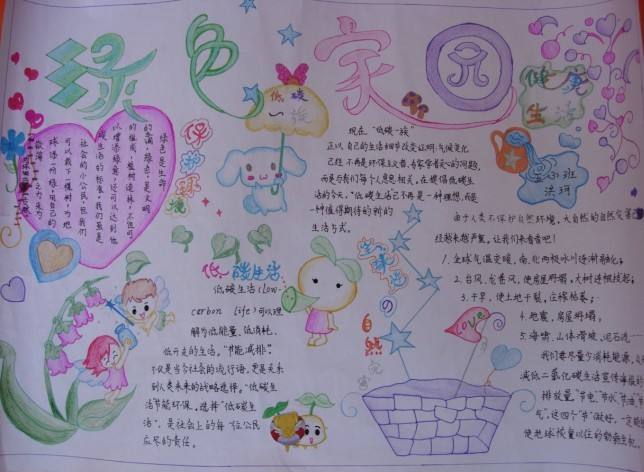 绿色家园
低碳
一族
健康
生活
保护环境
绿色是生命
的主调，绿色，是文明
的摇篮，植树造林，不但可
以增添绿意，还可以达到低
碳生活的标准，我们虽是
社会的小公民，但我们
可以栽下一棵树，为地
球添一份绿，用自己的
现在"低碳一族"
正以自己的生活细节改变证明：气候变化
已经不再是环保主义者、专家学者关心的问题，
而是与我们每个人息息相关。在提倡低碳生
活的今天，"低碳生活已不再是一种理想，而是
一种值得期待的新的
生活方式。
由于人类不保护自然环境，大自然的自然灾害
经越来越严重，让我们来看看吧！
1.全球气温变暖，南、北两极冰川逐渐融化；
2.台风、龙卷风，使房屋坍塌，大树连根拔起；
3.干旱，使土地干裂，庄稼枯萎；
4.地震，房屋坍塌，
5.海啸、山体滑坡、泥石流
我们要尽量少消耗能源，
减低二氧化碳
排放量。"节电"、"节水"、
气"，这四个"节"做好，一定能
使地球恢复以往的勃勃生机。
低碳生活
低碳生活（low-
carbon life）可以理
解为低能量、低消耗、
低开支的生活。"节能减排"，
不仅是当今社会的流行语，更是关系
到人类未来的战略选择。"低碳生
活节能环保，选择"低碳生
活"，是社会上的每一位公民
应尽的责任。
的自然
Love